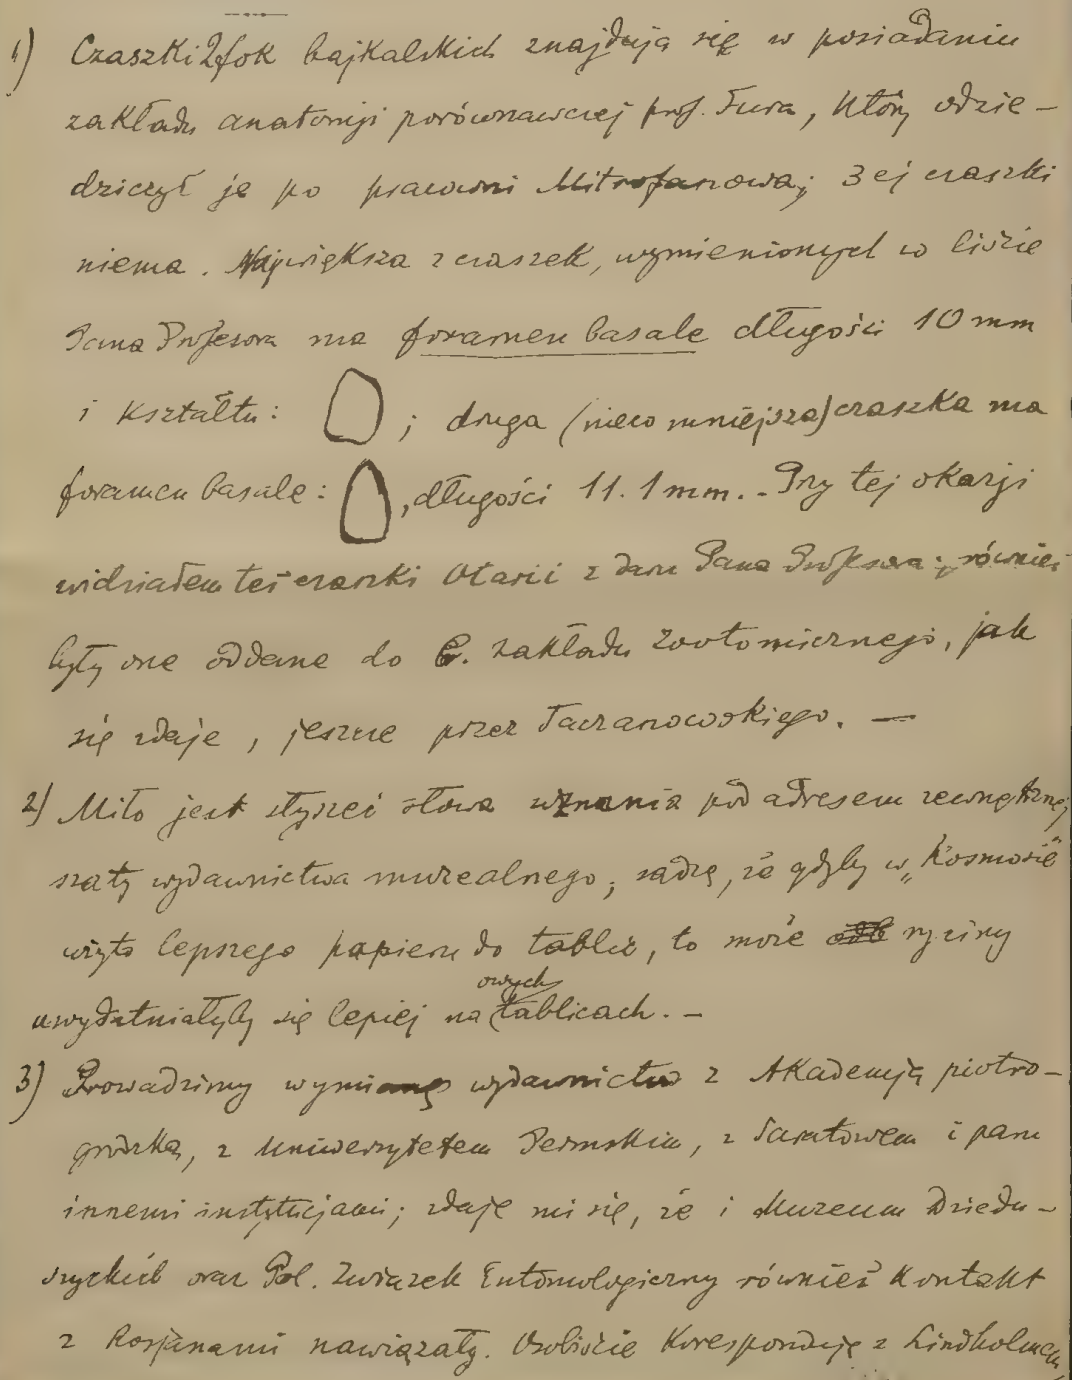 1) Czaszki 2 fok bajkalskich znajdują się w posiadaniu
zakładu anatomji porównawczej prof. Tura, który odzie-
dziczył je po pracowni Mitrofanowa; 3ej czaszki
niema. Największa z czaszek, wymienionych w liście
Pana Profesora ma foramen basale długości 10 mm
i kształtu: ; druga (nieco mniejsza) czaszka ma
foramen basale: , długości 11.1 mm. - Przy tej okazji
widziałem też czaszki Otarii z daru Pana Profesora; również
były one oddane do zakładu zootomicznego, jak
się zdaje, jeszcze przez Taczanowskiego. —
2) Miło jest słyszeć słowa uznania pod adresem zewnętrznej
szaty wydawnictwa muzealnego; sądzę, że gdyby w „Kosmosie"
użyto lepszego papieru do tablic, to może ryciny
uwydatniałyby się lepiej na owych tablicach. -
3) Prowadzimy wymianę wydawnictw z Akademją piotro-
grodzką, z Uniwersytetem Permskim, z Saratowem i paru
innemi instytucjami; zdaje mi się, że i Muzeum Dziedu-
szyckich oraz Pol. Związek Entomologiczny również kontakt
z Rosjanami nawiązały. Osobiście koresponduję z Lindholmem,